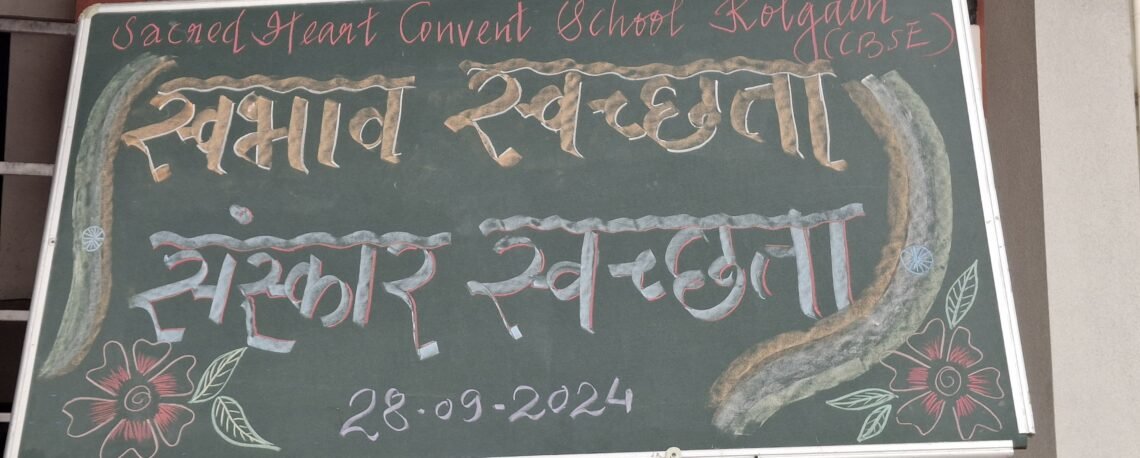 Sacred Heart Convent School Kolgaon
(CBSE)
स्वभाव स्वच्छता
संस्कार स्वच्छता
28-09-2024